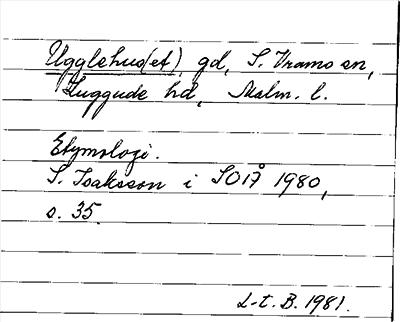 Ugglehus(et), gd, S. Vramo sn,
Luggude hd, Malm. l.
Etymologi.
S. Isaksson i SOIÅ 1980,
s. 35.
L-t. B. 1981.